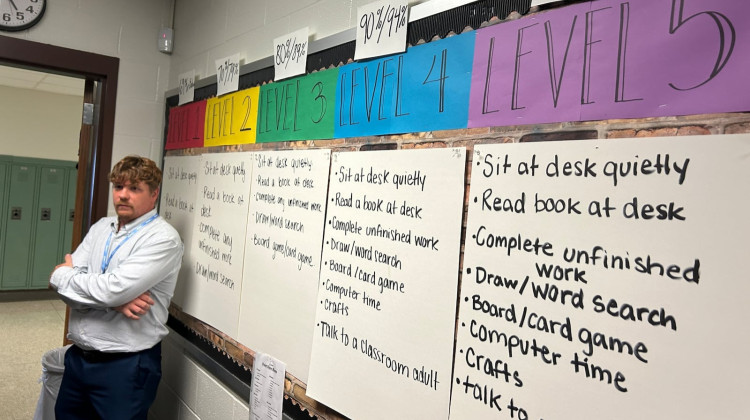 70%/79%
80%/89%
90%/94%
LEVEL 1
LEVEL 2
LEVEL 3
LEVEL 4
LEVEL 5
Sit at desk quietly
Read a book at
desk
Sit at desk quietly
Read a book at
desk
Complete any
unfinished work
Draw/word search
Sit at desk quietly
Read a book at desk
Complete any unfinished work
Draw/word search
Board game/card game
Sit at desk quietly
Read a book at desk
Complete unfinished work
Draw/word search
Board/card game
Computer time
Crafts
Talk to a classroom adult
Sit at desk quietly
Read book at desk
Complete unfinished
work
Draw/word search
Board/card game
Computer time
Crafts
talk to